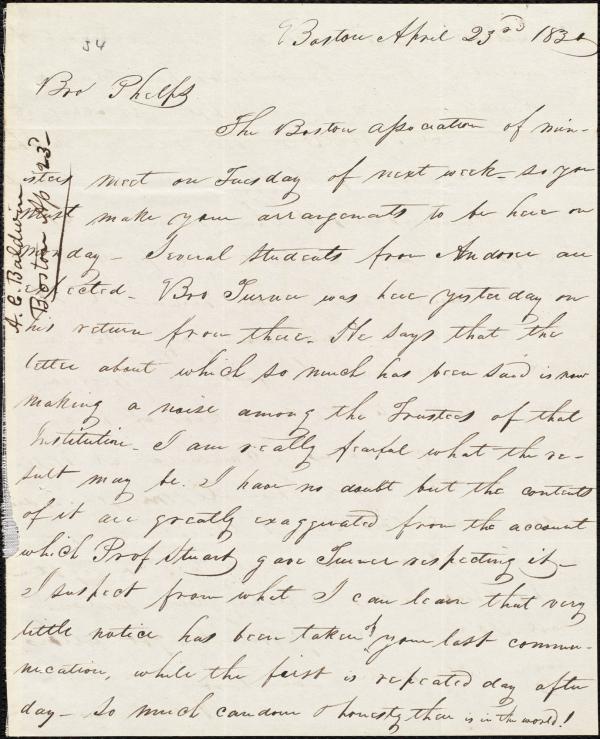 54
Boston April 23rd 1830
Bro Phelps
The Boston Association of min-
isters meet on Tuesday of next week - so you
must make your arrangements to be here on
monday - Several students from Andover are
expected. Bro Turner was here yesterday on
his return from there. He says that the
letter about which so much has been said is now
making a noise among the Trustees of that
Institution. I am really fearful what the re-
sult may be. I have no doubt but the contents
of it are greatly exaggerated from the account
which Prof Stuart gave Turner respecting it -
I suspect from what I can learn that very
little notice has been taken of your last commu-
nication, while the first is repeated day after
day - so much candour & honesty there is in the world!
A. E. Baldwin
Boston Ap 23d